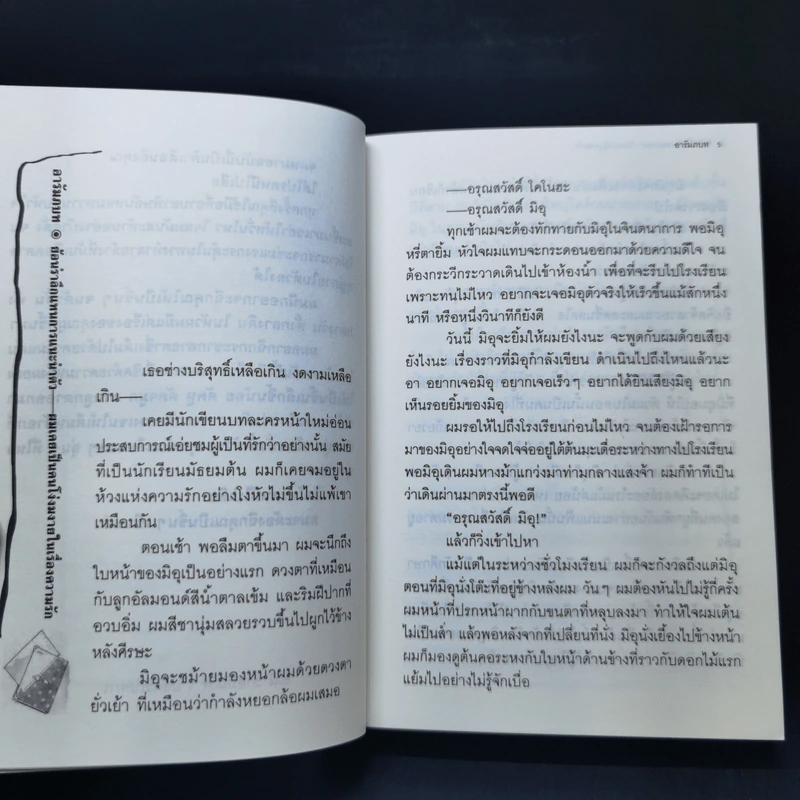 อารัมภบท ๏ อัตบริกรแทนการแนะนำตัว—ผมเคยเป็นคนโง่งมงายในเรื่องความรัก
เธอช่างบริสุทธิ์เหลือเกิน งดงามเหลือ
เกิน——
เคยมีนักเขียนบทละครหน้าใหม่อ่อน
ประสบการณ์เอ่ยชมผู้เป็นที่รักว่าอย่างนั้น สมัย
ที่เป็นนักเรียนมัธยมต้น ผมก็เคยจมอยู่ใน
ห้วงแห่งความรักอย่างโงหัวไม่ขึ้นไม่แพ้เขา
เหมือนกัน
ตอนเช้า พอลืมตาขึ้นมา ผมจะนึกถึง
ใบหน้าของมิอุเป็นอย่างแรก ดวงตาที่เหมือน
กับลูกอัลมอนด์สีน้ำตาลเข้ม และริมฝีปากที่
อวบอิ่ม ผมสีชานุ่มสลวยรวบขึ้นไปผูกไว้ข้าง
หลังศีรษะ
มิอุจะชม้ายมองหน้าผมด้วยดวงตา
ยั่วเย้า ที่เหมือนว่ากำลังหยอกล้อผมเสมอ
อารัมภบท
——อรุณสวัสดิ์ โคโนฮะ
——อรุณสวัสดิ์ มิอุ
ทุกเช้าผมจะต้องทักทายกับมิอุในจินตนาการ พอมิอุ
หรี่ตายิ้ม หัวใจผมแทบจะกระดอนออกมาด้วยความดีใจ จน
ต้องกระวีกระวาดเดินไปเข้าห้องน้ำ เพื่อที่จะรีบไปโรงเรียน
เพราะทนไม่ไหว อยากจะเจอมิอุตัวจริงให้เร็วขึ้นแม้สักหนึ่ง
นาที หรือหนึ่งวินาทีก็ยังดี
วันนี้ มิอุจะยิ้มให้ผมยังไงนะ จะพูดกับผมด้วยเสียง
ยังไงนะ เรื่องราวที่มิอุกำลังเขียน ดำเนินไปถึงไหนแล้วนะ
อา อยากเจอมิอุ อยากเจอเร็วๆ อยากได้ยินเสียงมิอุ อยาก
เห็นรอยยิ้มของมิอุ
ผมรอให้ไปถึงโรงเรียนก่อนไม่ไหว จนต้องเฝ้ารอการ
มาของมิอุอย่างใจจดใจจ่ออยู่ใต้ต้นมะเดื่อระหว่างทางไปโรงเรียน
พอมิอุเดินผมหางม้าแกว่งมาท่ามกลางแสงจ้า ผมก็ทำทีเป็น
ว่าเดินผ่านมาตรงนี้พอดี
“อรุณสวัสดิ์ มิอุ!”
แล้วก็วิ่งเข้าไปหา
แม้แต่ในระหว่างชั่วโมงเรียน ผมก็จะกังวลถึงแต่มิอุ
ตอนที่มิอุนั่งโต๊ะที่อยู่ข้างหลังผม วันๆ ผมต้องหันไปไม่รู้กี่ครั้ง
ผมหน้าที่ปรกหน้าผากกับขนตาที่หลุบลงมา ทำให้ใจผมเต้น
ไม่เป็นส่ำ แล้วพอหลังจากที่เปลี่ยนที่นั่ง มิอุนั่งเยื้องไปข้างหน้า
ผมก็มองดูต้นคอระหงกับใบหน้าด้านข้างที่ราวกับดอกไม้แรก
แย้มไปอย่างไม่รู้จักเบื่อ